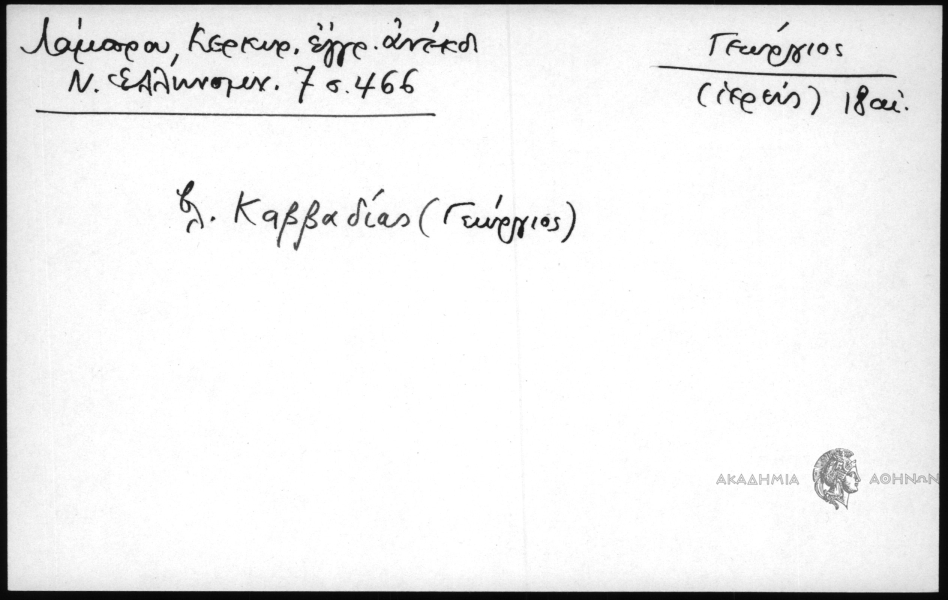 Λάμπρου, Κερκυρ. ἔγγρ. ἀνέκδ
Ν. Ἑλληνομν. 7 σ. 466
Γεώργιος
(ἱερεύς) 18 αἰ.
βλ. Καββαδίας (Γεώργιος)
ΑΚΑΔΗΜΙΑ ΑΘΗΝΩΝ